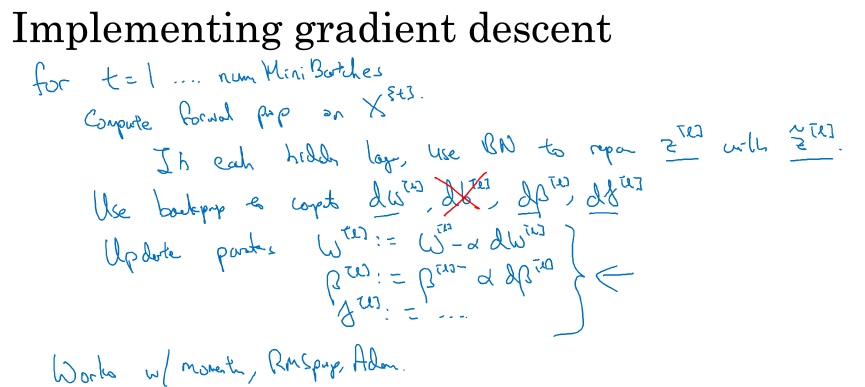 Implementing gradient descent
for t = 1 .... num Mini Batches
Compute forward prop on X^{t}.
In each hidden lay, use BN to repar z^[l] with z̃^[l].
Use backprop to compt dw^[l], db^[l], dβ^[l], dγ^[l]
Update parates w^[l] := w^[l] - α dw^[l]
β^[l] := β^[l] - α dβ^[l]
γ^[l] := ....
Works w/ momentu, RMSprop, Adam.